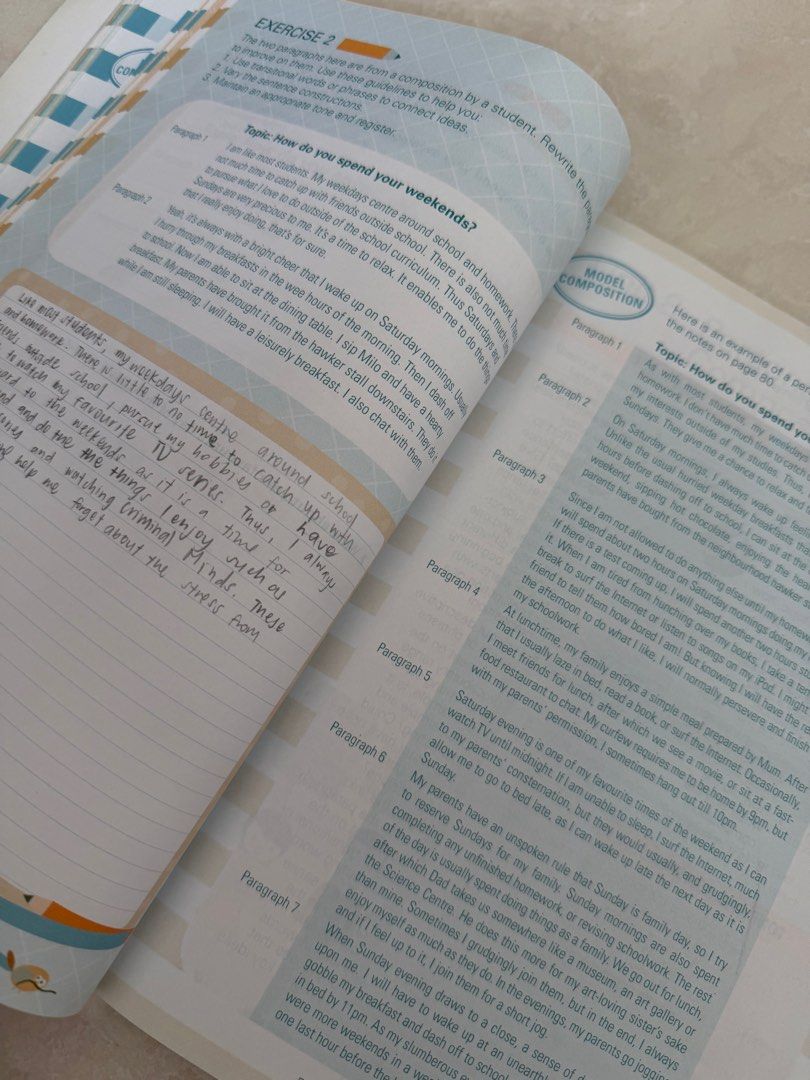 EXERCISE 2
The two paragraphs here are from a composition by a student. Rewrite the
to improve on them. Use these guidelines to help you:
1. Use transitional words or phrases to connect ideas.
2. Vary the sentence constructions.
3. Maintain an appropriate tone and register.
Topic: How do you spend your weekends?
Paragraph 1
I am like most students. My weekdays centre around school and homework.
not much time to catch up with friends outside school. There is also not much
to pursue what I love to do outside of the school curriculum. Thus Saturdays and
Sundays are very precious to me. It's a time to relax. It enables me to do the things
that I really enjoy doing, that's for sure.
Paragraph 2
Yeah, it's always with a bright cheer that I wake up on Saturday mornings. Usually
I hurry through my breakfasts in the wee hours of the morning. Then I dash off
to school. Now I am able to sit at the dining table. I sip Milo and have a hearty
breakfast. My parents have brought it from the hawker stall downstairs. They do
while I am still sleeping. I will have a leisurely breakfast. I also chat with them
Like most students, my weekdays centre around school
and homework. There is little to no time to catch up with
outside school, pursue my hobbies or have
to watch my favourite TV series. Thus, I always
to the weekends as it is a time for
and do the the things I enjoy such as
and watching Criminal Minds. These
help me forget about the stress from
MODEL
COMPOSITION
Here is an example of a
the notes on page 80.
Topic: How do you spend
Paragraph 1
As with most students, my weekdays
homework. I don't have much time to catch
my interests outside of my studies. Thus
Sundays! They give me a chance to relax and
Paragraph 2
On Saturday mornings, I always wake up
Unlike the usual hurried weekday breakfasts
hours before dashing off to school, I can sit at the
weekend, sipping hot chocolate, enjoying the
parents have bought from the neighbourhood hawker
Paragraph 3
Since I am not allowed to do anything else until my
will spend about two hours on Saturday mornings doing my
If there is a test coming up, I will spend another two hours
it. When I am tired from hunching over my books, I take a
break to surf the Internet or listen to songs on my iPod. I might
friend to tell them how bored I am! But knowing I will have the rest
the afternoon to do what I like, I will normally persevere and finish
my schoolwork.
Paragraph 4
At lunchtime, my family enjoys a simple meal prepared by Mum. After
that I usually laze in bed, read a book, or surf the Internet. Occasionally,
I meet friends for lunch, after which we see a movie, or sit at a fast-
food restaurant to chat. My curfew requires me to be home by 9pm, but
with my parents' permission, I sometimes hang out till 10pm.
Paragraph 5
Saturday evening is one of my favourite times of the weekend as I can
watch TV until midnight. If I am unable to sleep, I surf the Internet, much
to my parents' consternation, but they would usually, and grudgingly,
allow me to go to bed late, as I can wake up late the next day as it is
Sunday.
Paragraph 6
My parents have an unspoken rule that Sunday is family day, so I try
to reserve Sundays for my family. Sunday mornings are also spent
completing any unfinished homework, or revising schoolwork. The rest
of the day is usually spent doing things as a family. We go out for lunch,
after which Dad takes us somewhere like a museum, an art gallery or
the Science Centre. He does this more for my art-loving sister's sake
than mine. Sometimes I grudgingly join them, but in the end, I always
enjoy myself as much as they do. In the evenings, my parents go jogging
and if I feel up to it, I join them for a short jog.
Paragraph 7
When Sunday evening draws to a close, a sense of
upon me. I will have to wake up at an unearthly
gobble my breakfast and dash off to school
in bed by 11pm. As my slumberous
were more weekends in a week
one last hour before the